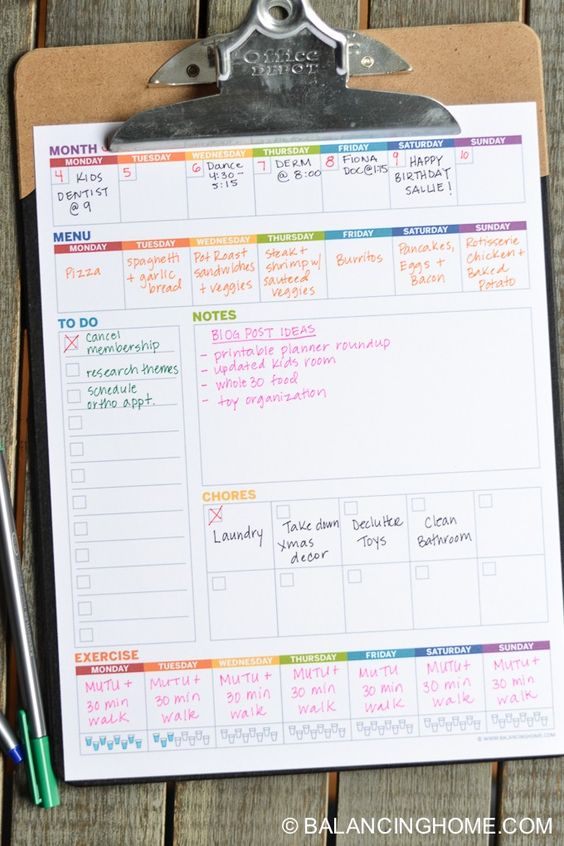 Office
DEPOT
MONTH
MONDAY TUESDAY WEDNESDAY THURSDAY FRIDAY SATURDAY SUNDAY
4 KIDS
DENTIST
@ 9
5
6 Dance
4:30-
5:15
7 DERM
@ 8:00
8 FIONA
DOC@1:15
9 HAPPY
BIRTHDAY
SALLIE!
10
MENU
MONDAY TUESDAY WEDNESDAY THURSDAY FRIDAY SATURDAY SUNDAY
Pizza
spaghetti
+ garlic
bread
Pot Roast
sandwiches
+ veggies
Steak +
shrimp w/
sauteed
veggies
Burritos
Pancakes,
Eggs +
Bacon
Rotisserie
chicken +
Baked
Potato
TO DO
Cancel
membership
research themes
Schedule
ortho appt.
NOTES
BLOG POST IDEAS
- printable planner roundup
- updated kids room
- whole 30 food
- toy organization
CHORES
Laundry
Take down
Xmas
decor
Declutter
Toys
Clean
Bathroom
EXERCISE
MONDAY TUESDAY WEDNESDAY THURSDAY FRIDAY SATURDAY SUNDAY
MUTU + MUTU + MUTU + MUTU + MUTU + MUTU + MUTU +
30 min 30 min 30 min 30 min 30 min 30 min 30 min
walk walk walk walk walk walk walk
© WWW.BALANCINGHOME.COM
© BALANCINGHOME.COM